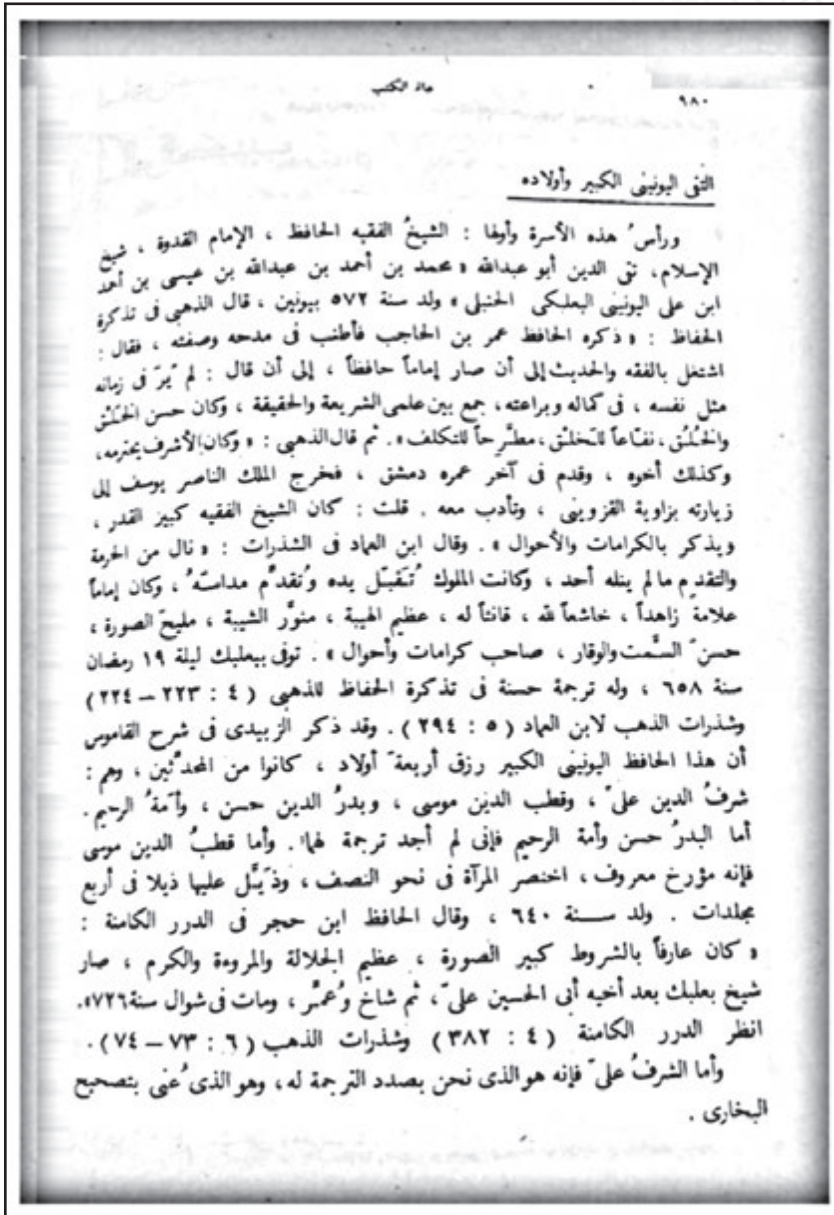 مجلة الكتب
٩٨٠
التقى اليونينى الكبير وأولاده
ورأسُ هذه الأسرة وأولها : الشيخُ الفقيه الحافظ ، الإمام القدوة ، شيخ
الإسلام، تقى الدين أبو عبدالله « محمد بن أحمد بن عبدالله بن عيسى بن أحمد
ابن على اليونينى البعلبكى الحنبلى » ولد سنة ٥٧٢ بيونين ، قال الذهبى فى تذكرة
الحفاظ : « ذكره الحافظ عمر بن الحاجب فأطنب فى مدحه وصفته ، فقال :
اشتغل بالفقه والحديث إلى أن صار إماماً حافظاً ، إلى أن قال : لم يَرَ فى زمانه
مثل نفسه ، فى كماله وبراعته، جمع بين علمى الشريعة والحقيقة ، وكان حسن الخَلْق
والخُلُق، نفّاعاً للخلق، مطَّرِحاً للتكلف». ثم قال الذهبى : « وكان الأشرف يحترمه،
وكذلك أخوه ، وقدم فى آخر عمره دمشق ، فخرج الملك الناصر يوسف إلى
زيارته بزاوية القزوينى ، وتأدب معه . قلت : كان الشيخ الفقيه كبيز القدر ،
ويذكر بالكرامات والأحوال » . وقال ابن العماد فى الشذرات : « نال من الحرمة
والتقدم مالم ينله أحد ، وكانت الملوك تُقبِّل يده وتُقدِّم مداسَه ُ ، وكان إماماً
علامة زاهداً ، خاشعاً لله ، قانتاً له ، عظيم الهيبة ، منوَّر الشيبة ، مليحَ الصورة ،
حسنَ السَّمت والوقار ، صاحب كرامات وأحوال » . توفى ببعلبك ليلة ١٩ رمضان
سنة ٦٥٨ ، وله ترجمة حسنة فى تذكرة الحفاظ للذهبى ( ٤ : ٢٢٣ – ٢٢٤ )
وشذرات الذهب لابن العماد ( ٥ : ٢٩٤ ) . وقد ذكر الزبيدى فى شرح القاموس
أن هذا الحافظ اليونينى الكبير رزق أربعةَ أولاد ، كانوا من المحدِّثين ، وهم :
شرفُ الدين علىّ ، وقطب الدين موسى ، وبدرُ الدين حسن ، وأمَةُ الرحيم.
أما البدرُ حسن وأمة الرحيم فإنى لم أجد ترجمة لهما. وأما قطبُ الدين موسى
فإنه مؤرخ معروف ، اختصر المرآة فى نحو النصف ، وذيَّل عليها ذيلا فى أربع
مجلدات . ولد ســـنة ٦٤٠ ، وقال الحافظ ابن حجر فى الدرر الكامنة :
« كان عارفاً بالشروط كبير الصورة ، عظيم الجلالة والمروءة والكرم ، صار
شيخ بعلبك بعد أخيه أبى الحسين علىّ ، ثم شاخ وعُمِّر ، ومات فى شوال سنة ٧٢٦».
انظر الدرر الكامنة ( ٤ : ٣٨٢ ) وشذرات الذهب ( ٦ : ٧٣ – ٧٤ ) .
وأما الشرفُ علىّ فإنه هو الذى نحن بصدد الترجمة له، وهو الذى عُنى بتصحيح
البخارى .